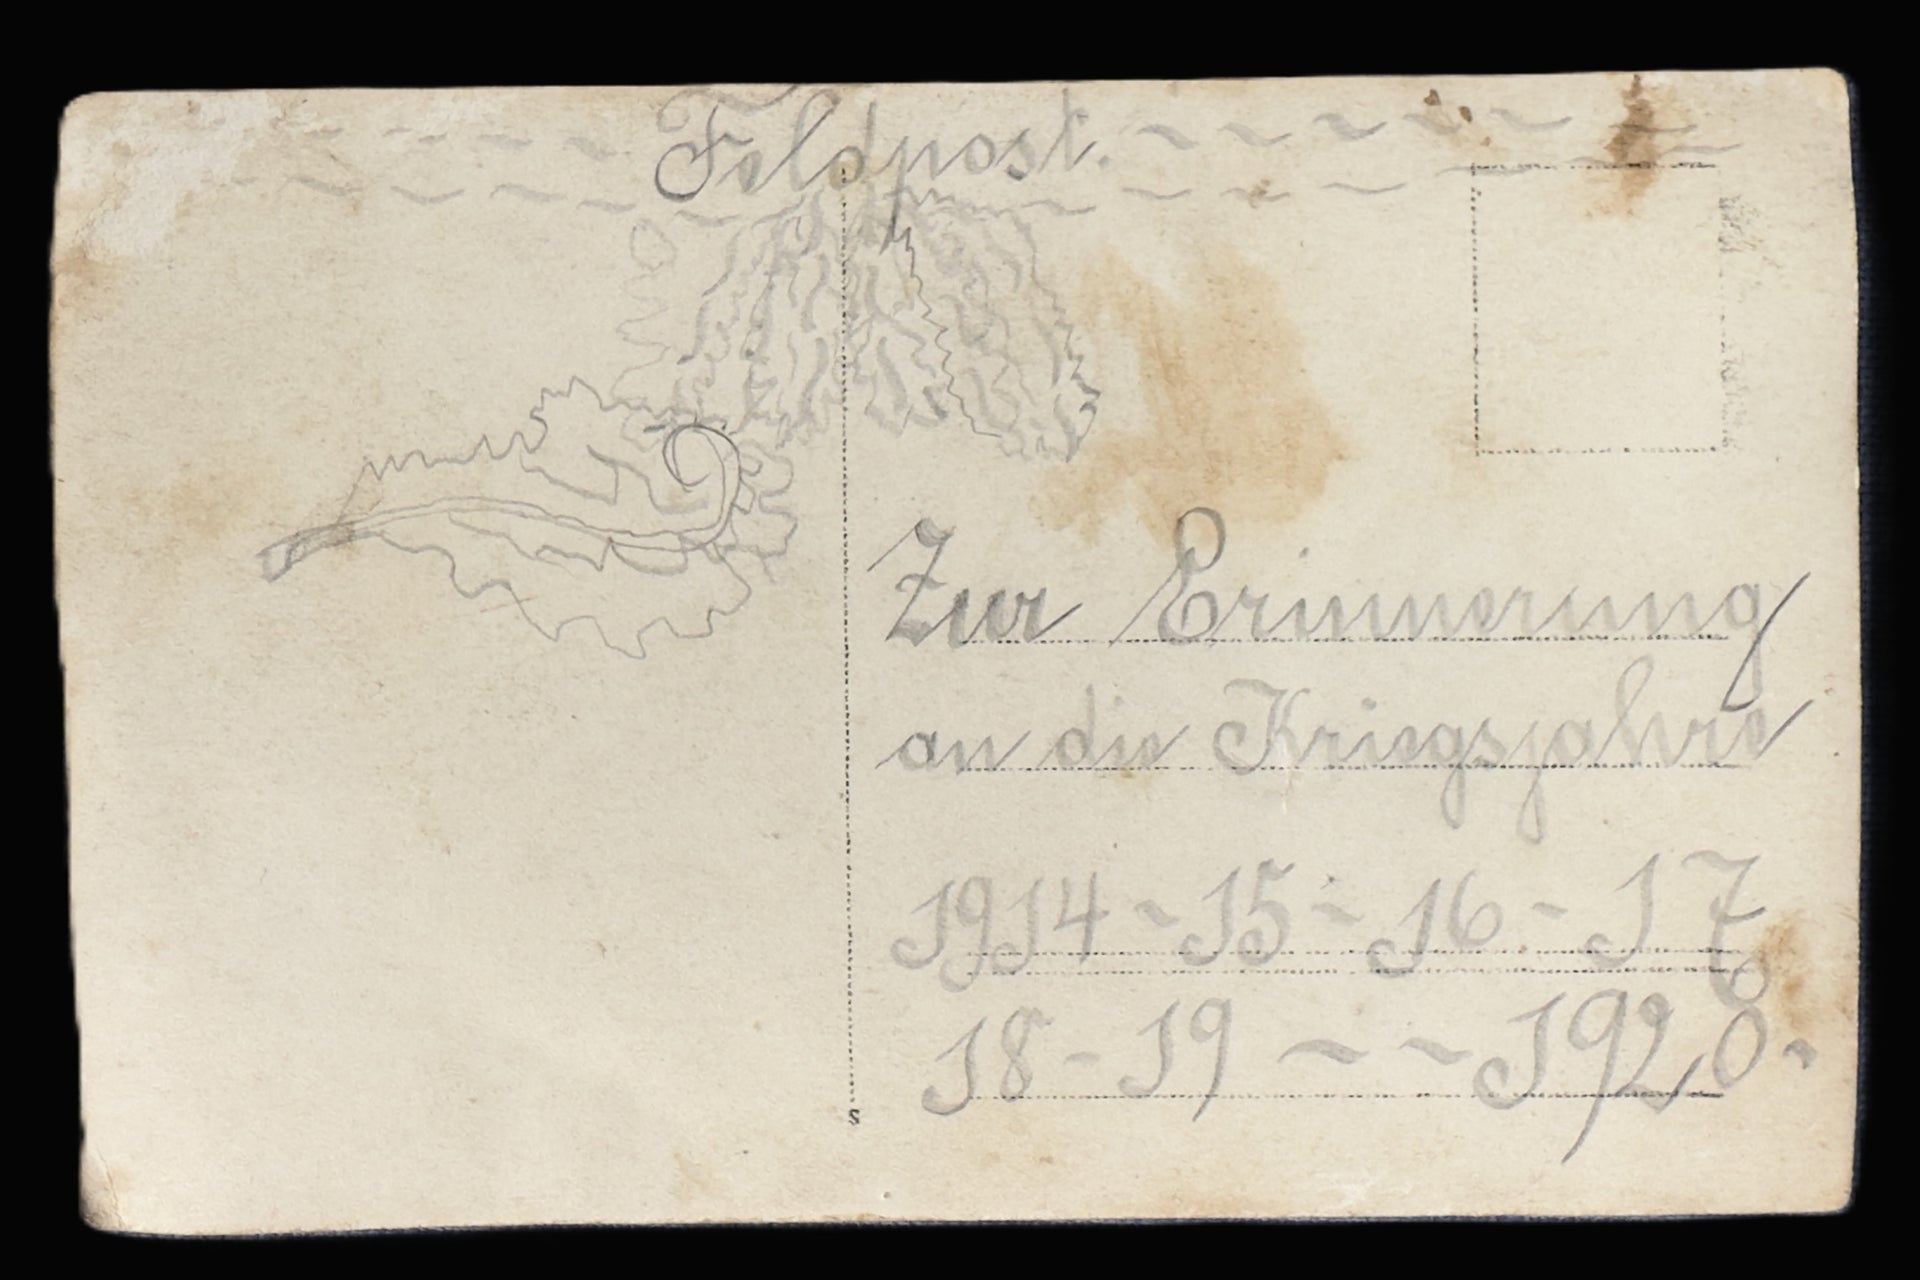 Feldpost.
Zur Erinnerung
an die Kriegsjahre
1914 - 15 - 16. - 17
18 - 19 - - 1920.
S